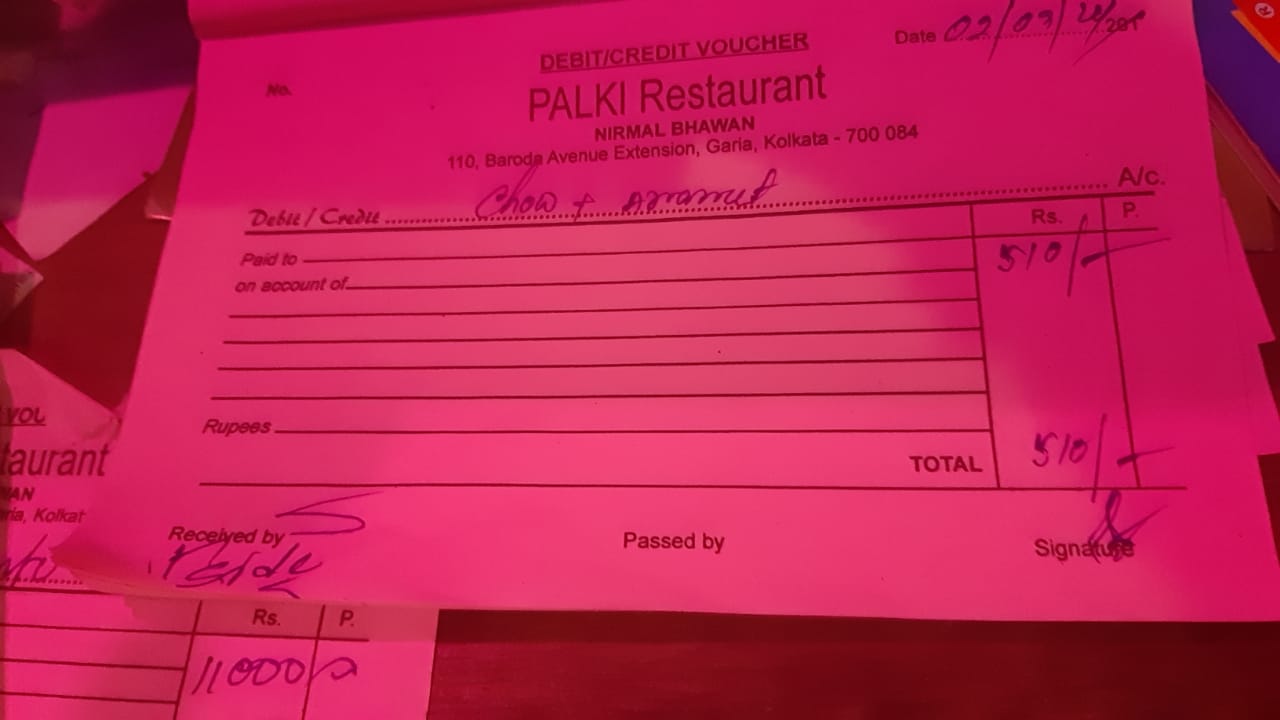 DEBIT/CREDIT VOUCHER
Date 02/03/
No.
PALKI Restaurant
NIRMAL BHAWAN
110, Baroda Avenue Extension, Garia, Kolkata - 700 084
Debit / Credit Chow + A/c.
Rs. P.
Paid to 510/-
on account of
Rupees
TOTAL 510/-
Received by
Passed by
Signature
VOU
taurant
WAN
ria, Kolkat
Rs. P.
11000